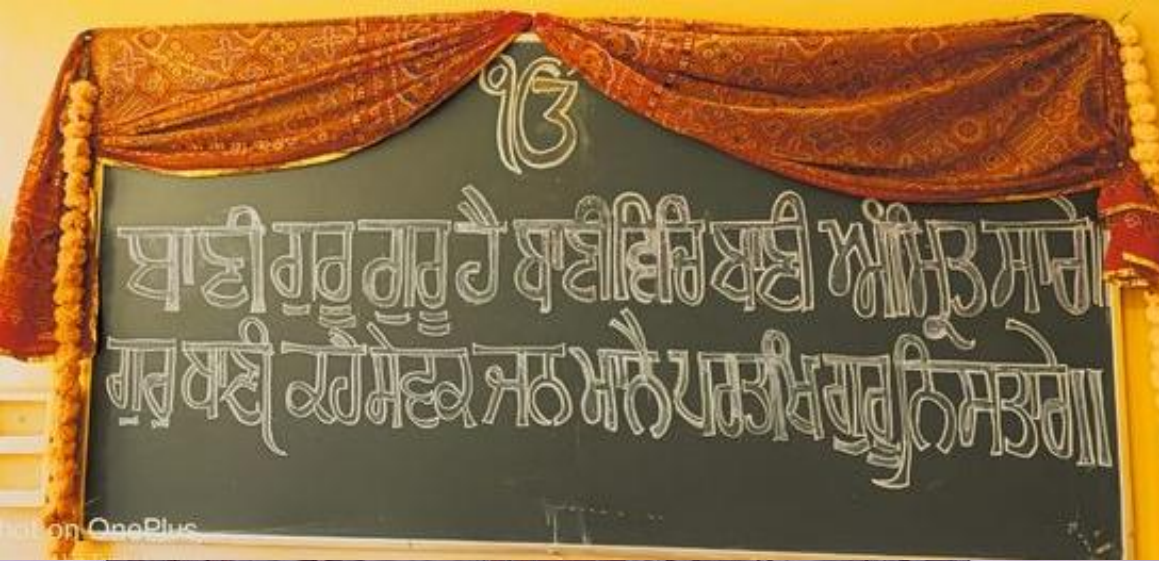 ੴ
ਬਾਣੀ ਗੁਰੂ ਗੁਰੂ ਹੈ ਬਾਣੀ ਵਿਚਿ ਬਾਣੀ ਅੰਮ੍ਰਿਤੁ ਸਾਰੇ॥
ਗੁਰੁ ਬਾਣੀ ਕਹੈ ਸੇਵਕੁ ਜਨੁ ਮਾਨੈ ਪਰਤਖਿ ਗੁਰੂ ਨਿਸਤਾਰੇ॥
Shot on OnePlus